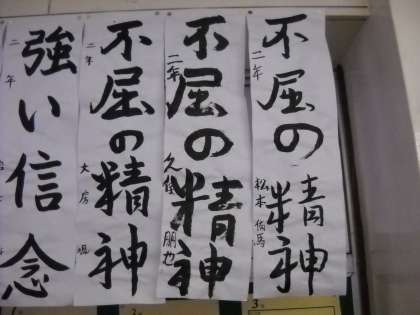 不屈の精神
二年
松本
不屈の精神
二年
朋也
不屈の精神
二年
大房
強い信念
二年